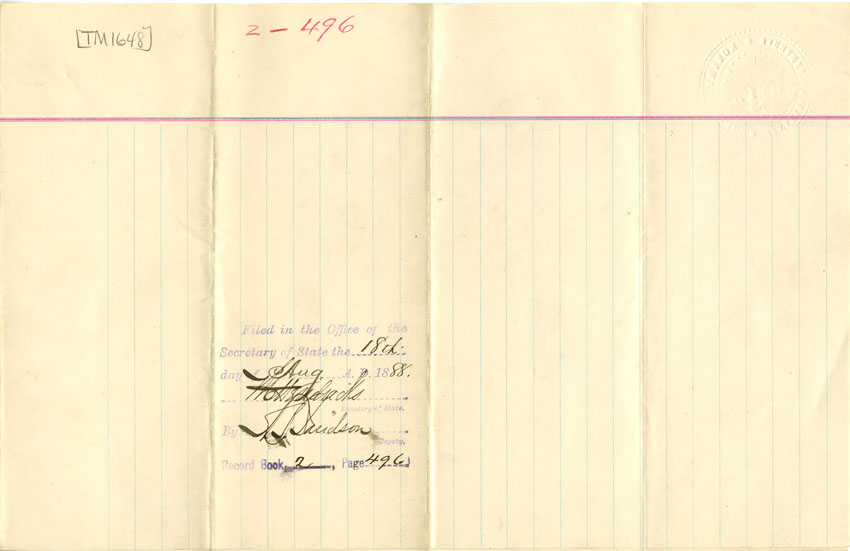 [TM1648]
2 - 496
Filed in the Office of the
Secretary of State the 18th
day of Aug A. D. 1888.
Secretary of State.
By Davidson
Deputy.
Record Book, 2, Page 496